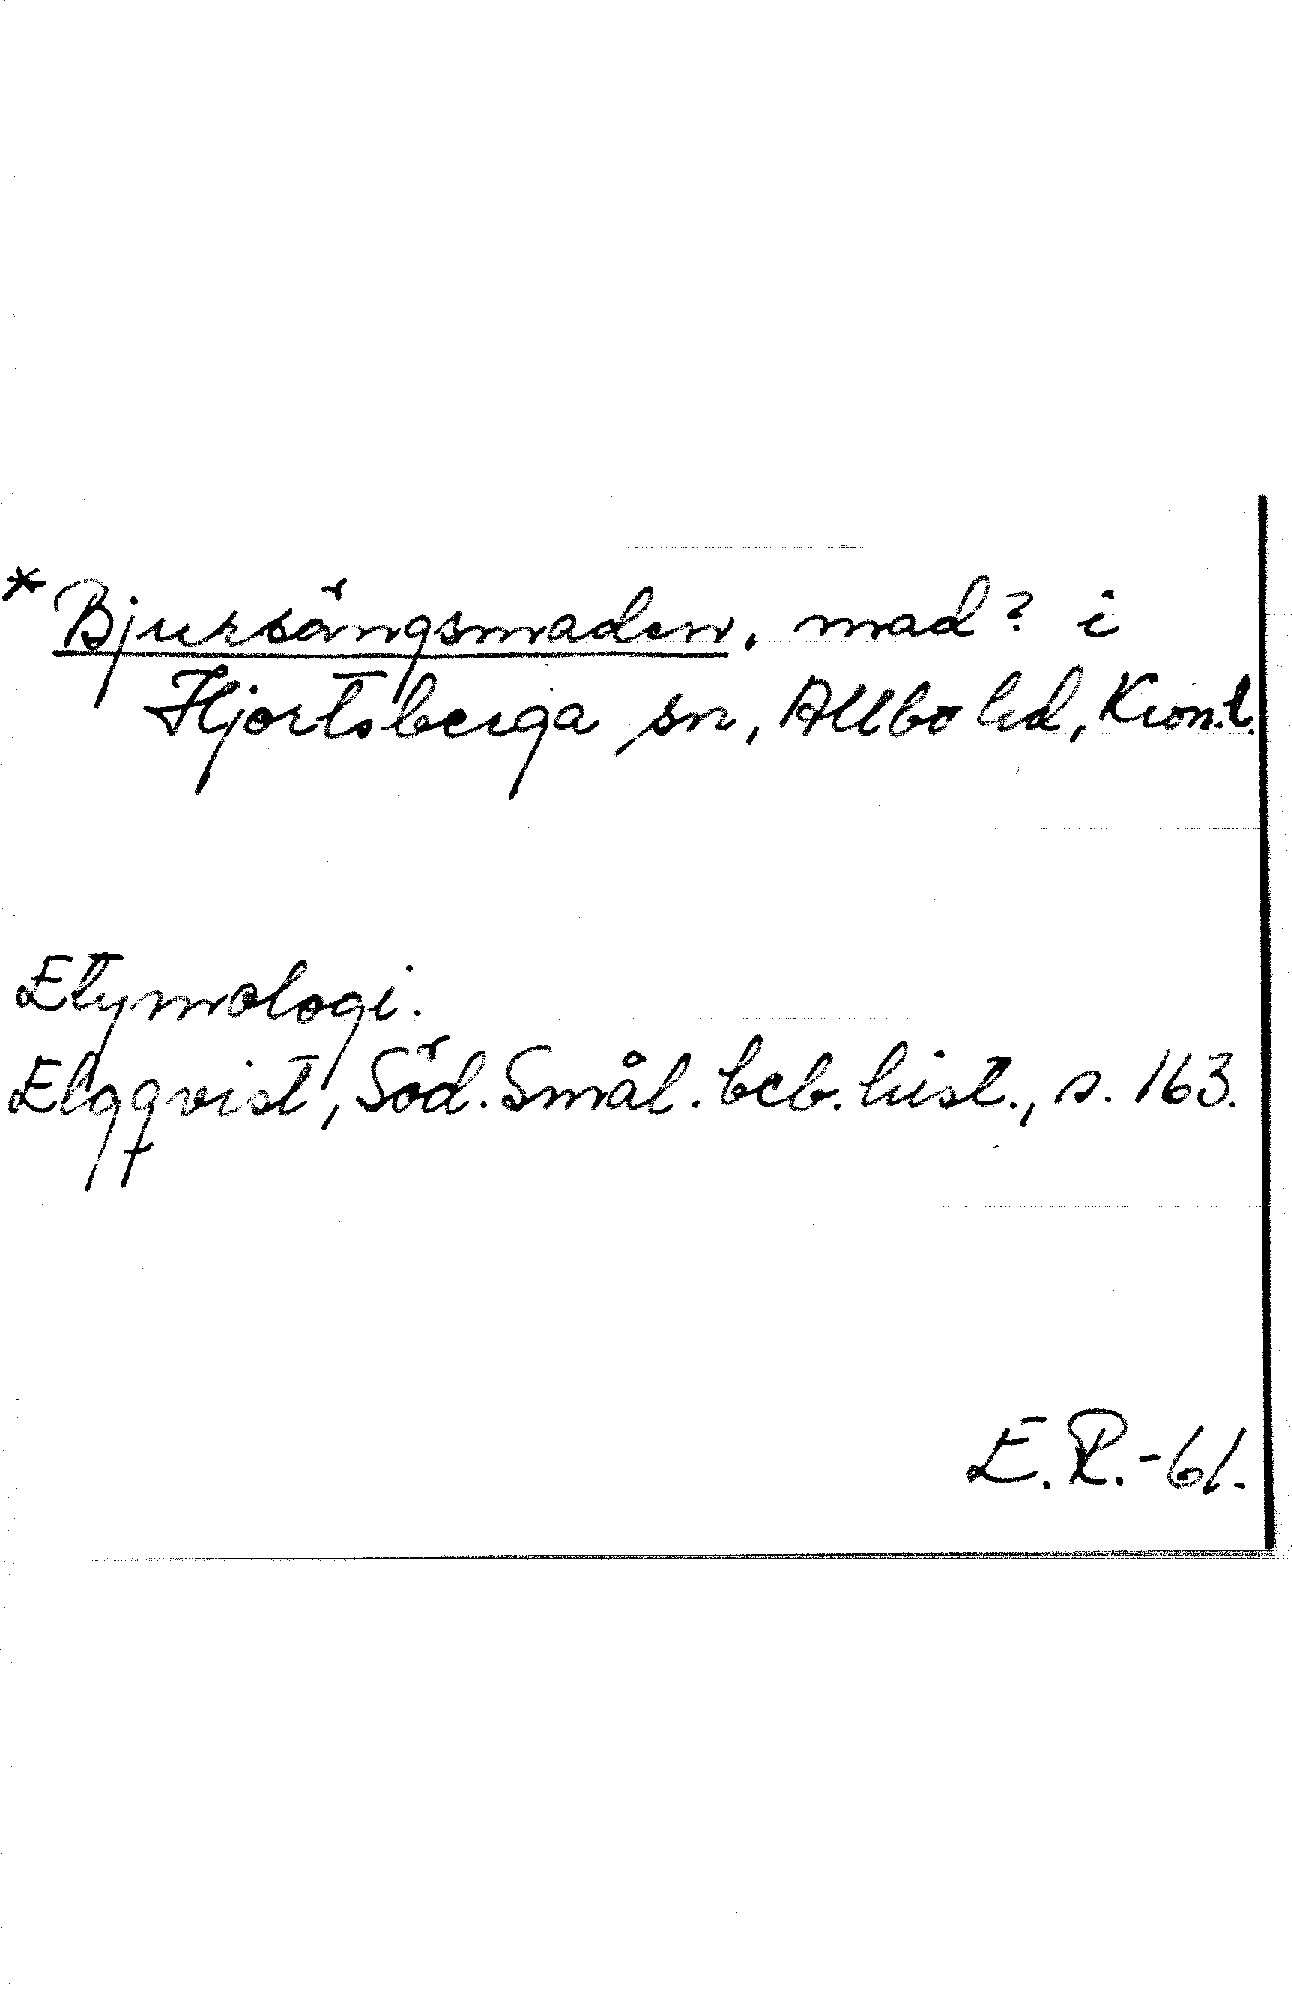 * Bjursängsmaden, mad? i
Hjortsberga sn, Allbo hd, Kron.l.
Etymologi.
Elgqvist, Söd. Smål. beb. hist., s. 163.
E. R. -61.